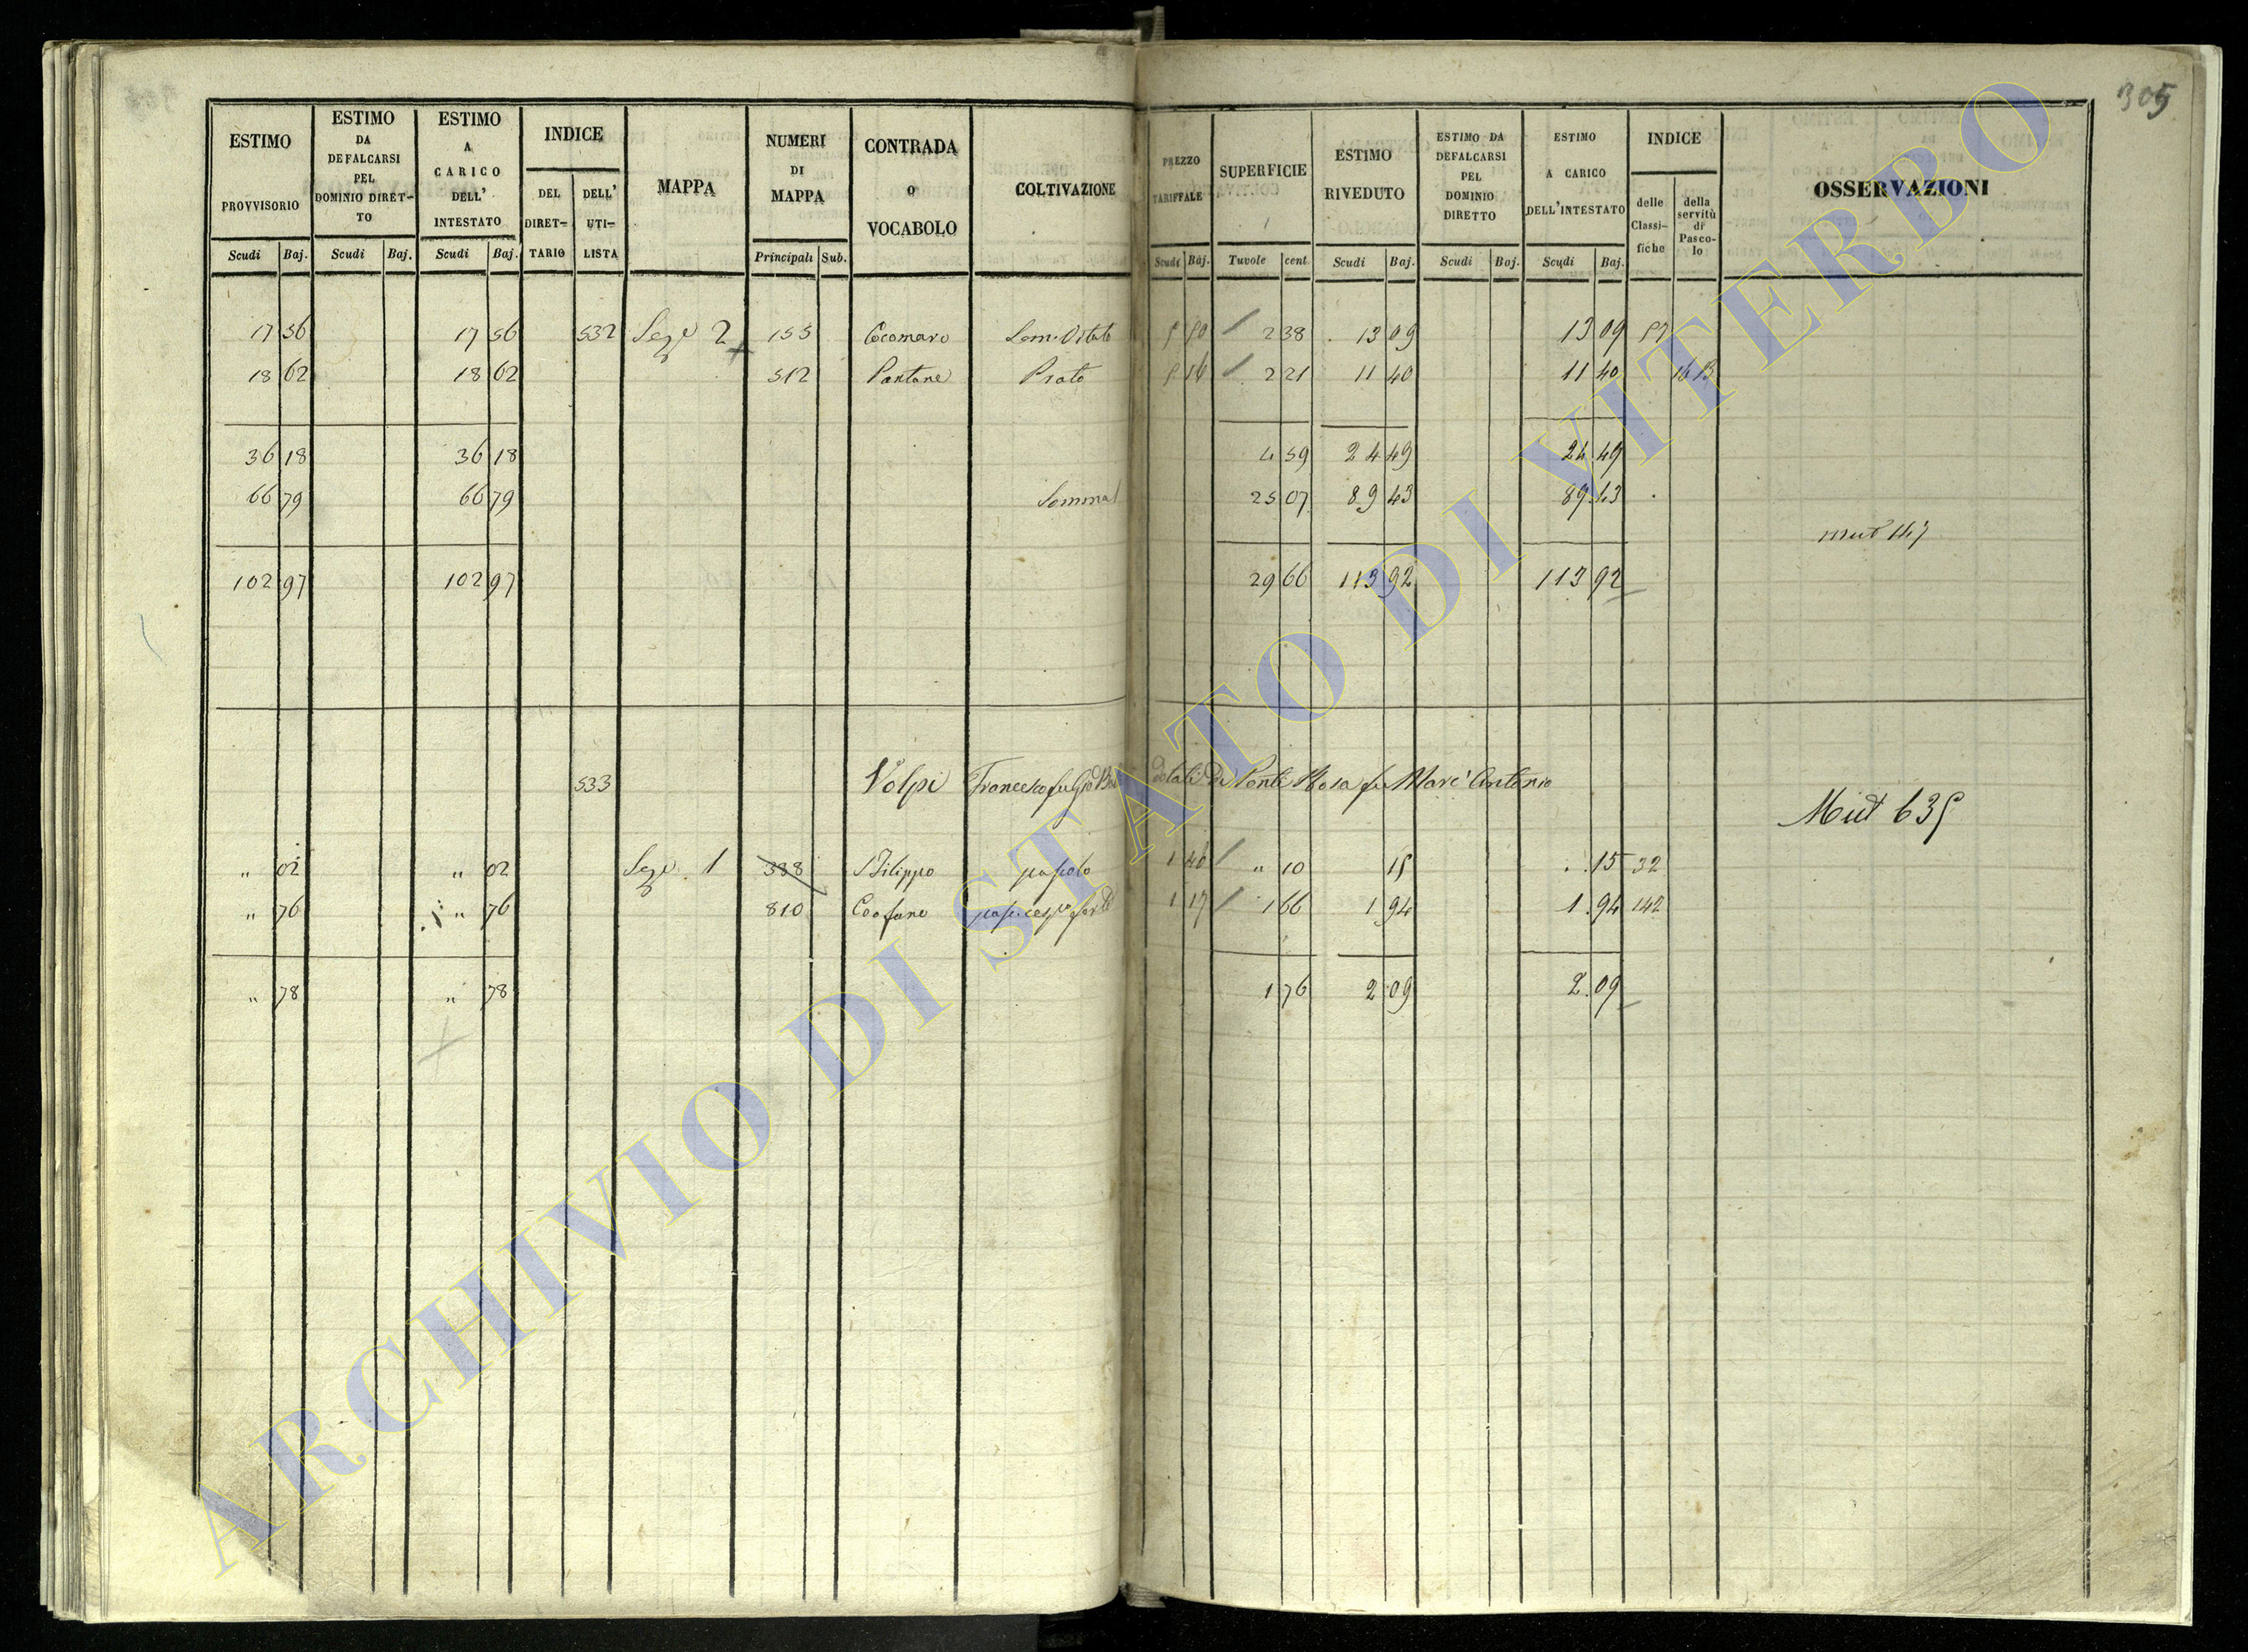 305
ESTIMO PROVVISORIO | ESTIMO DA DEFALCARSI PEL DOMINIO DIRET-TO | ESTIMO A CARICO DELL' INTESTATO | INDICE DEL DIRET-TARIO | DELL' UTI-LISTA | MAPPA | NUMERI DI MAPPA | CONTRADA O VOCABOLO | COLTIVAZIONE | PREZZO TARIFFALE | SUPERFICIE | ESTIMO RIVEDUTO | ESTIMO DA DEFALCARSI PEL DOMINIO DIRETTO | ESTIMO A CARICO DELL'INTESTATO | INDICE delle Classi-fiche | della servitù di Pasco-lo | OSSERVAZIONI
Scudi Baj. | Scudi Baj. | Scudi Baj. | Principali Sub. | Scudi Baj. | Tavole cent | Scudi Baj. | Scudi Baj. | Scudi Baj.
17 56 17 56 532 Seze 2 155 Cocomaro Sem. Vitato 5 50 2 38 13 09 13 09 57
18 62 18 62 512 Pantane Prato 5 16 2 21 11 40 11 40 16 B
36 18 36 18 4 59 24 49 24 49
66 79 66 79 Somma 25 07 89 43 89 43
mut 147
102 97 102 97 29 66 113 92 113 92
533 Volpi Francesco fu Gio Batta dotali di Ponti Rosa fu Marc' Antonio
Mut 635
" 02 " 02 Seze 1 388 S Filippo pascolo 1 46 " 10 15 15 32
" 76 " 76 810 1 17 1 66 1 94 1 94 142
" 78 " 78 1 76 2 09 2 09
ARCHIVIO DI STATO DI VITERBO